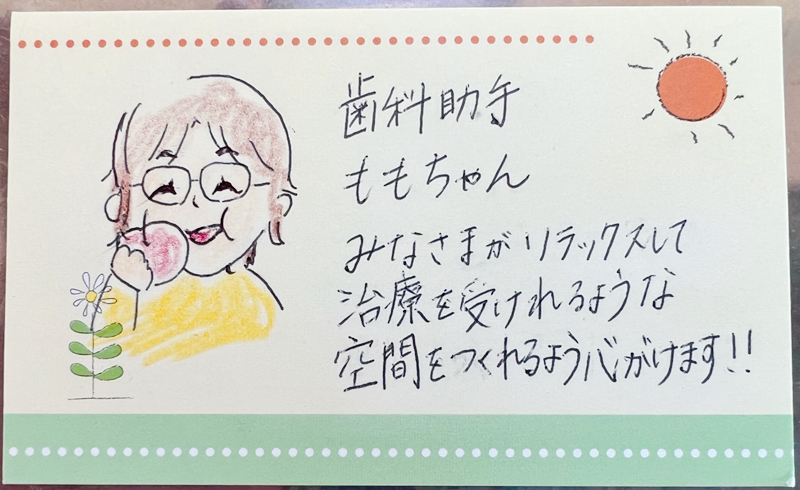 歯科助手
ももちゃん
みなさまがリラックスして
治療を受けれるような
空間をつくれるよう心がけます!!